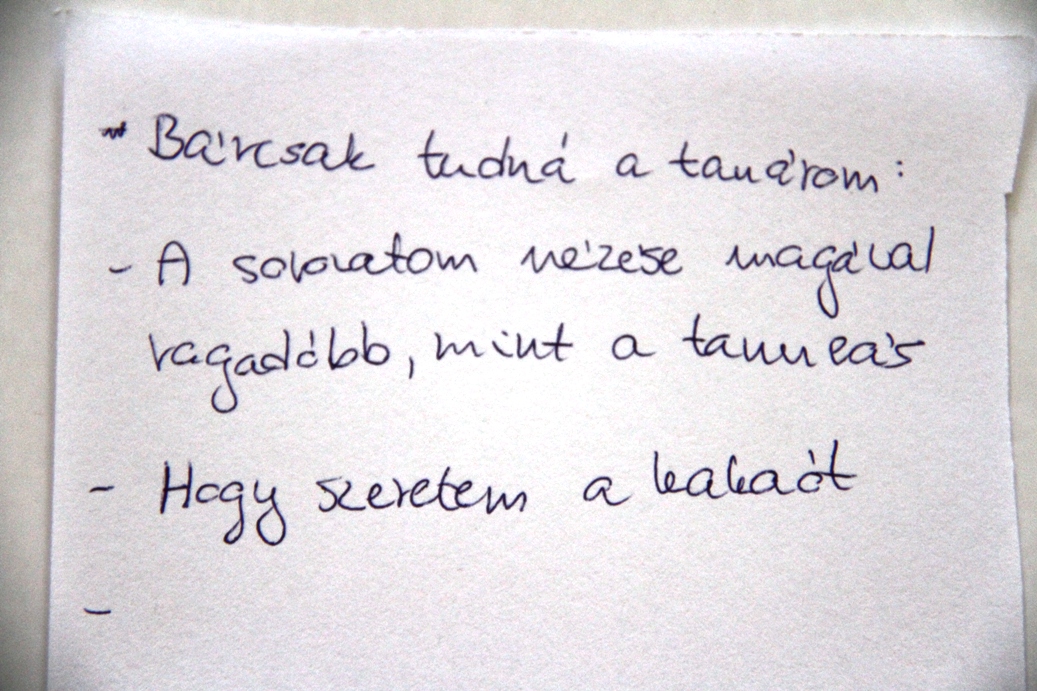 Bárcsak tudná a tanárom:
- A sorozatom nézése magával
ragadóbb, mint a tanulás
- Hogy szeretem a kakaót
-